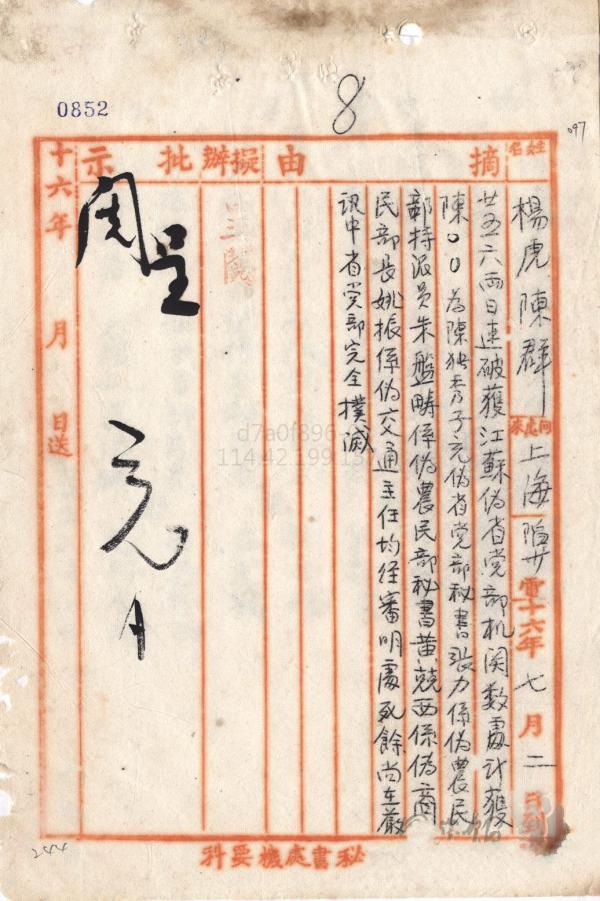 8
0852
097
姓名
摘
由
擬辦
批
示
楊虎陳群
何處來
上海
電
十六年七月二日到
廿五六兩日連破獲江蘇伪省党部机関数處計獲
陳○○為陳独秀子元伪省党部秘書張力係伪農民
部特派员朱盤疇係伪農民部秘書黄兢西係伪商
民部長姚振係伪交通主任均径審明處死餘尚在嚴
訊中省党部完全撲滅
呈閱
十六年 月 日送
秘書處機要科
244
d7a0f896